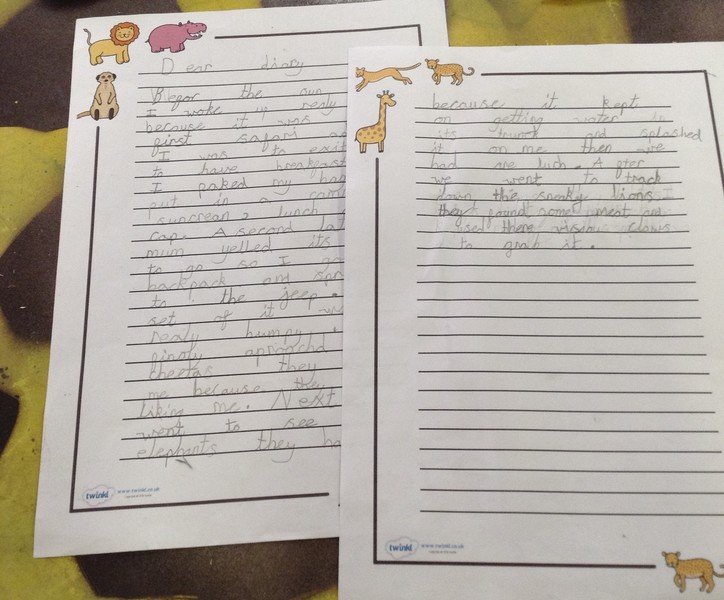 Dear diary
Befor the sun
I woke up realy
because it was
first safari
I was to exit
to have breakfast
I paked my bag
put in a cam
suncrean, lunch
cap. A second lat
mum yelled its
to go so I go
backpack and spr
to the jeep.
set of it w
realy bumpy.
finaly aproachd
cheetas they
me because they
liking me. Next
went to see
elephants they ha
twinkl www.twinkl.co.uk
because it kept
on getting water in
its trunk and splashed
it on me then we
had are luch. After
we went to track
down the sneaky lions
they found some meat and
used there visius claws
to grab it.
twinkl www.twinkl.co.uk